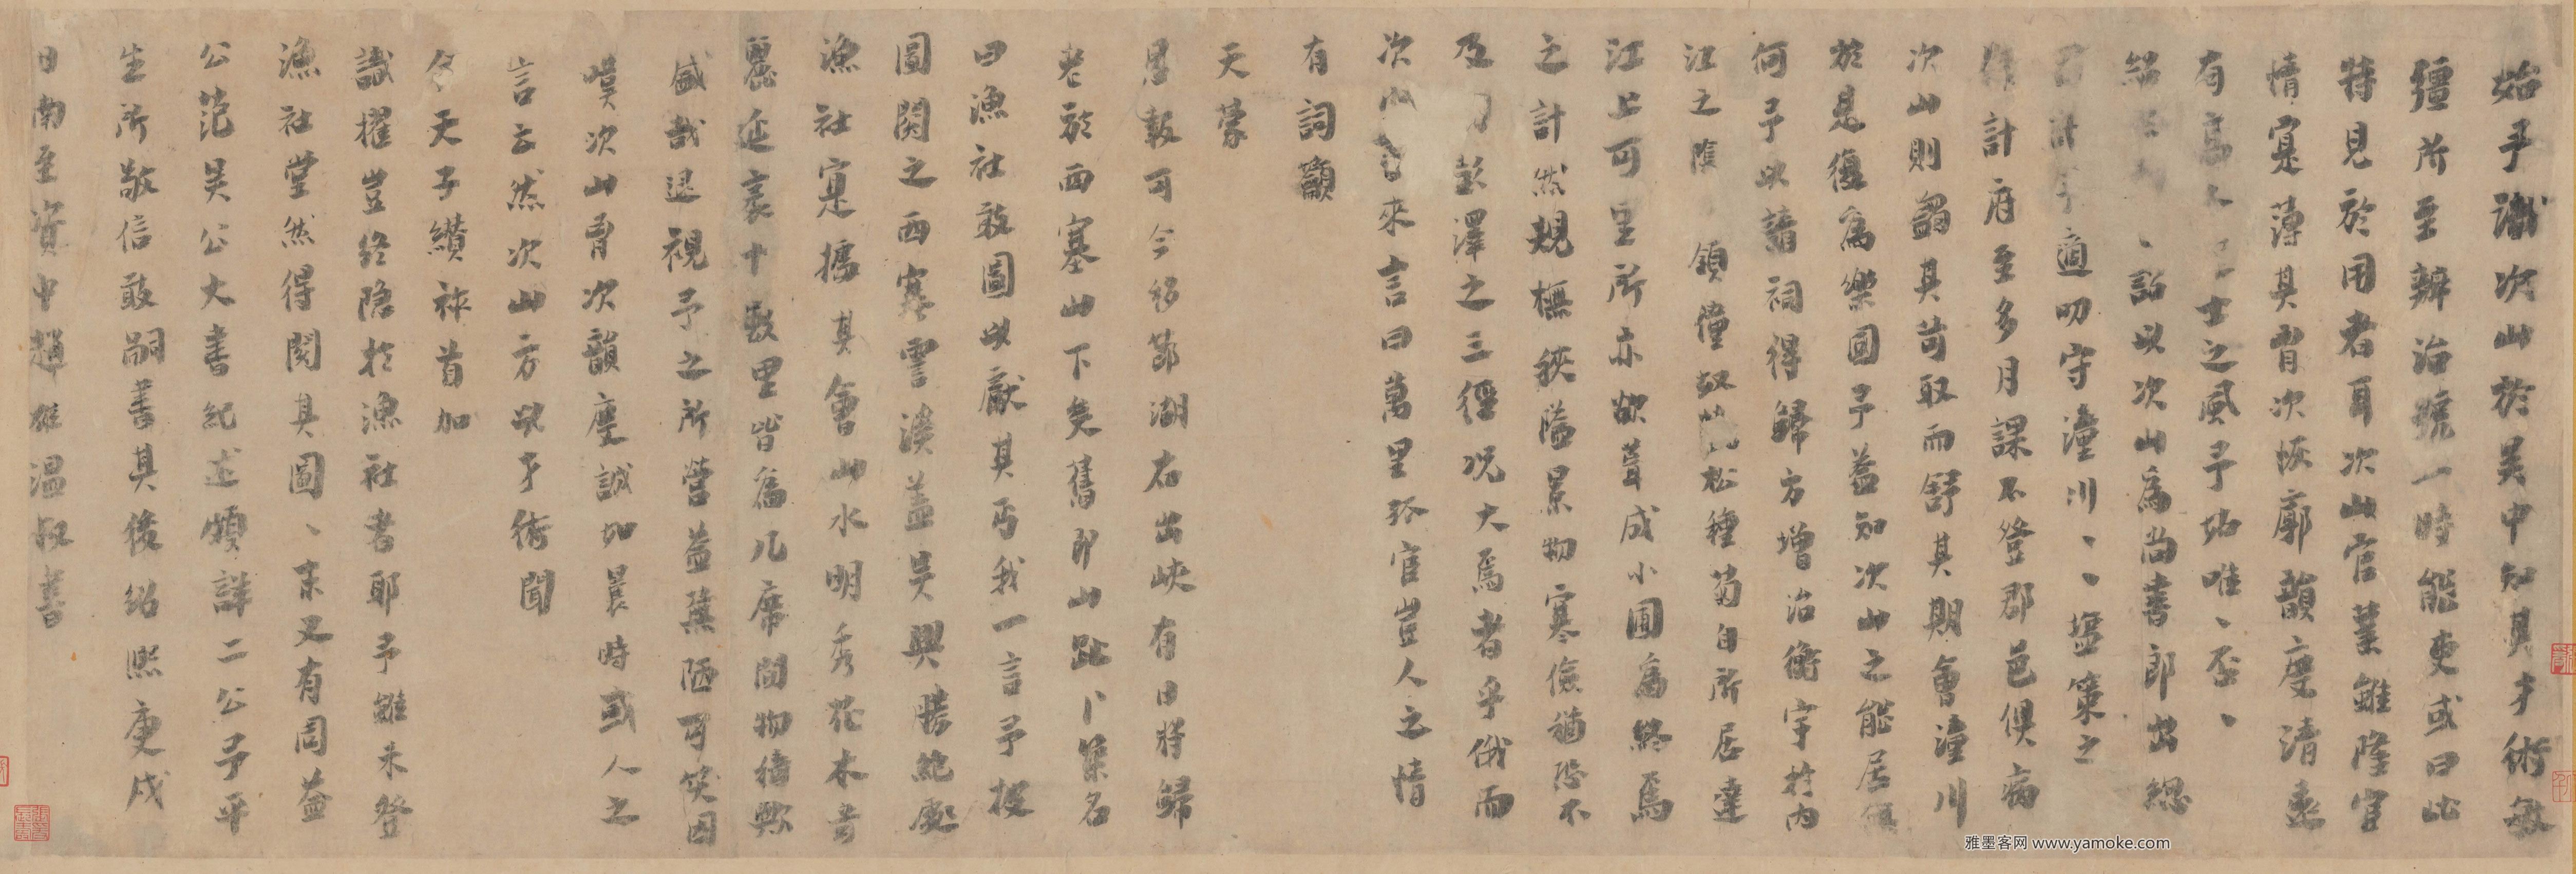 始予識次山於吳中知其才術敏
彊所至辦治號一時能吏或曰此
特見於用者耳次山官業雖隆宦
情寔薄其胷次恢廓韻度清遠
有高人 士之風予姑唯、否、
紹 詔以次山為尚書郎出總
計 予適叨守潼川、、壥策之
計府至多月課不登郡邑俱病
次山則蠲其苛取而舒其期會潼川
於是復為樂國予益知次山之能居
何予以請祠得歸方增治衡宇於内
江之 領僮奴 松種菊自所居達
江上可里所亦欲葺成小圃為終焉
之計然規橅狹隘景物寒儉猶恐不
及 彭澤之三徑況大焉者乎俄而
次山 來言曰萬里孤官豈人之情
有詞籲
天蒙
恩報可今移節湖右出峽有日將歸
老於西塞山下矣舊即山趾卜築名
曰漁社敢圖以獻其丐我一言予披
圖閱之西塞雪溪蓋吳興勝絶處
漁社寔據其會山水明秀花木音
麗延袤十數里皆為几席間物猗歟
盛哉退視予之所營蓋蕪陋可笑因
嘆次山胷次韻度誠如曩時或人之
言云然次山方以才術聞
今天子纘祚首加
識擢豈終隱於漁社者耶予雖未登
漁社堂然得閱其圖、末又有周益
公范吳公大書紀述頗詳二公予平
生所敬信敢嗣書其後紹熙庚戌
日南至資中趙雄温叔書
雅墨客网 www.yamoke.com